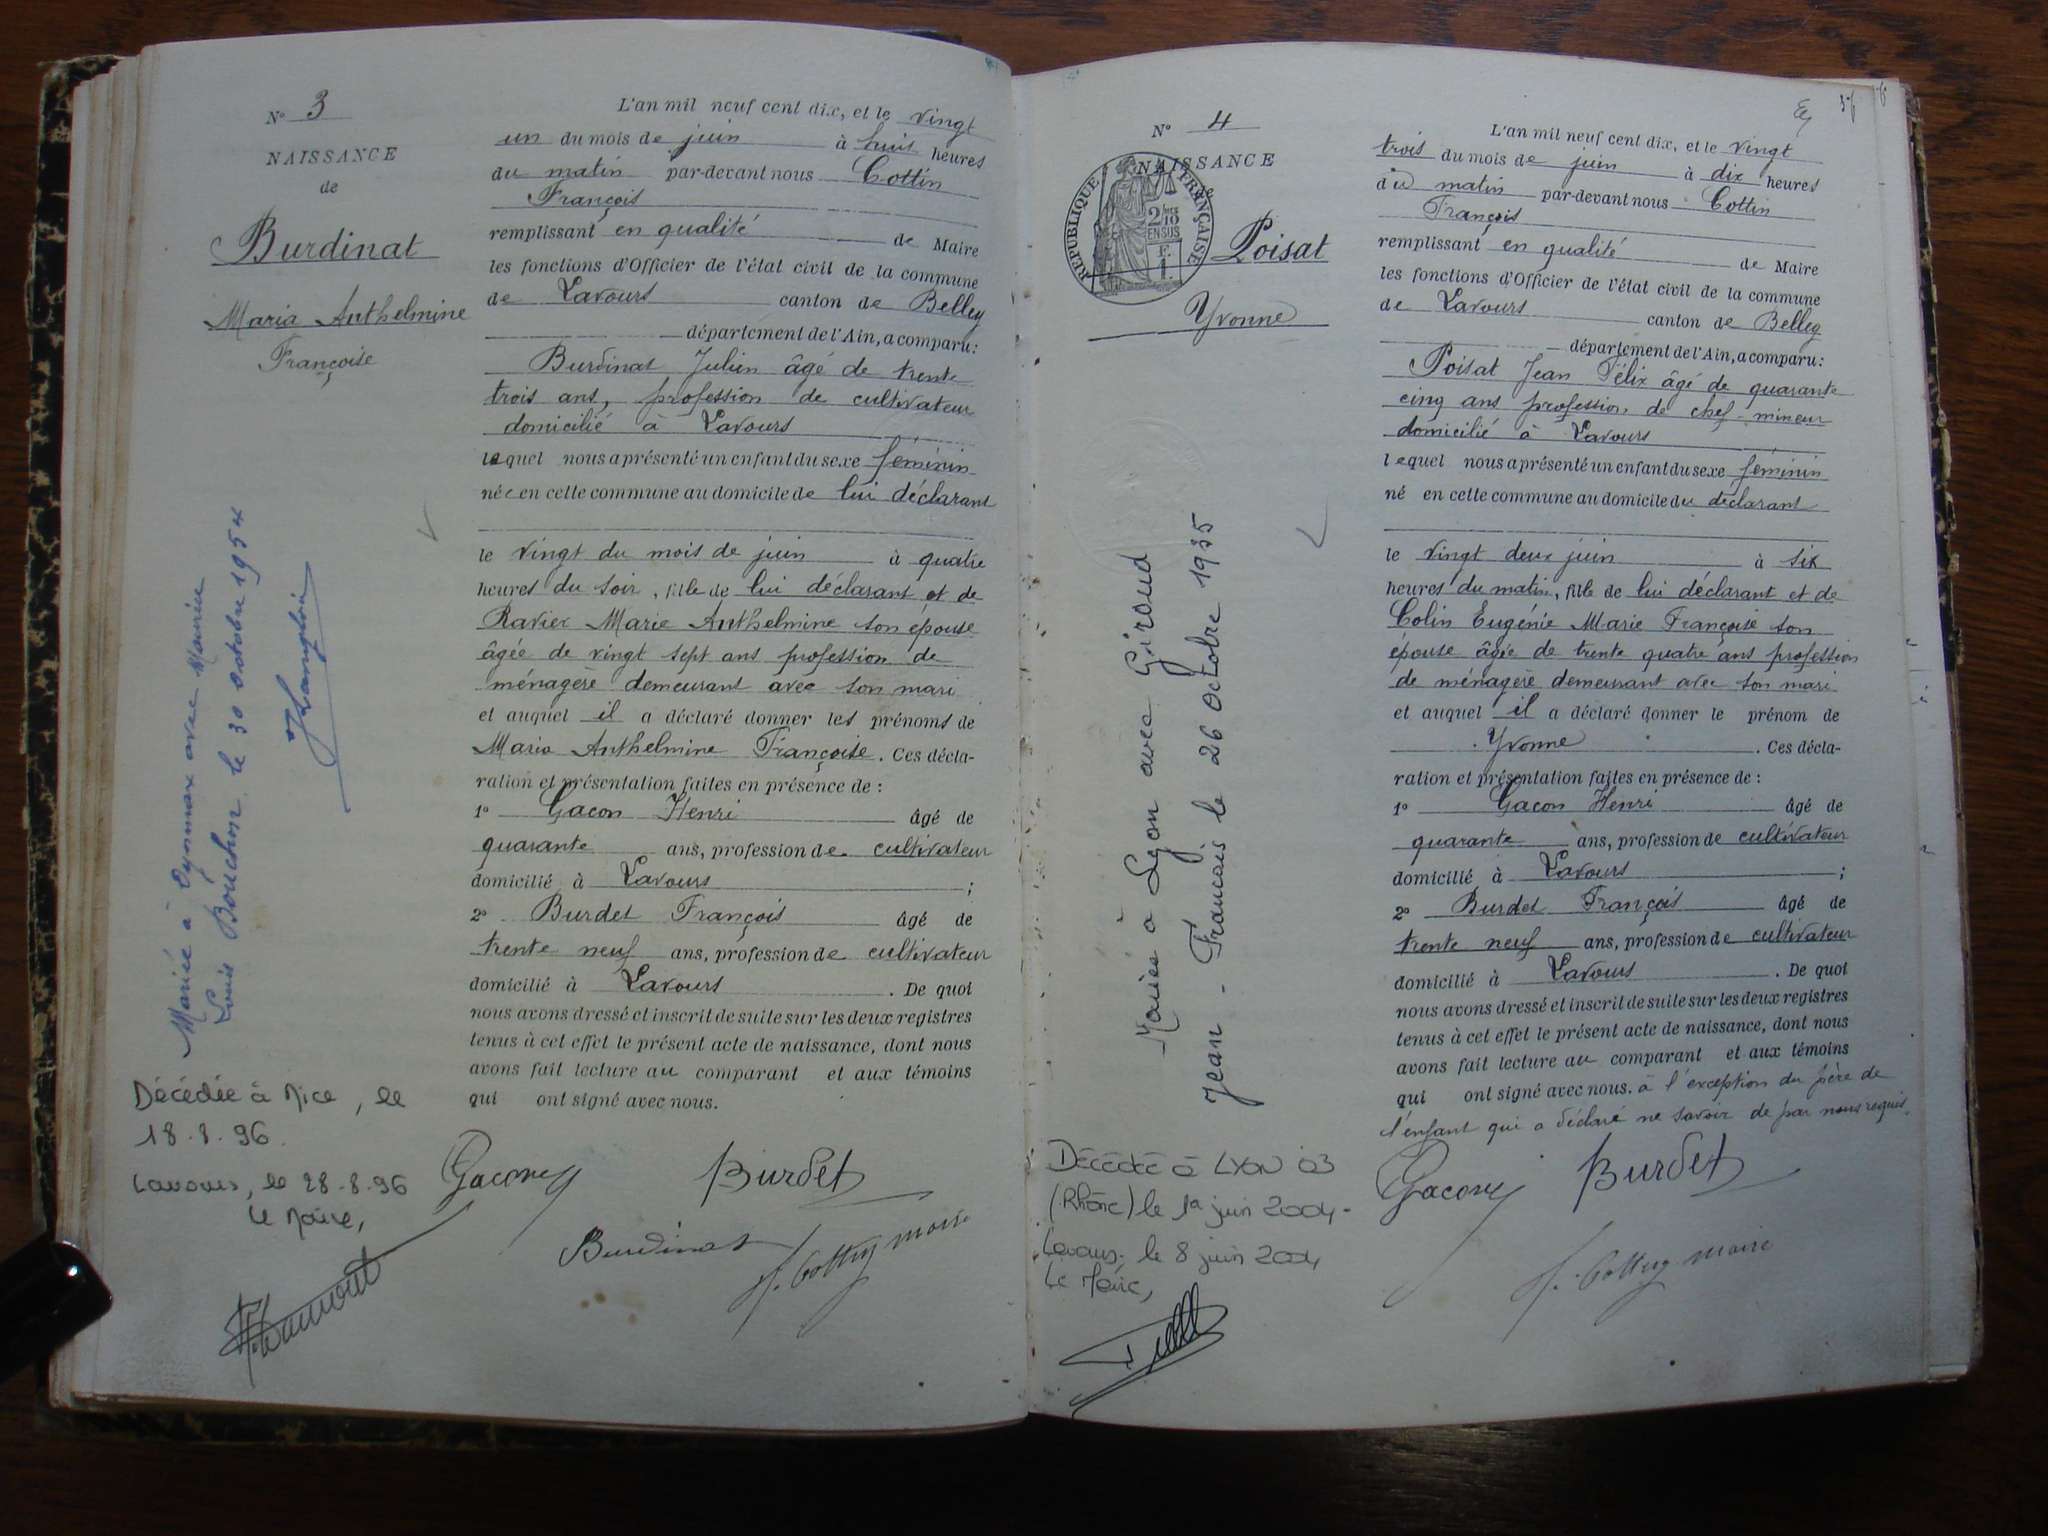 N° 3
NAISSANCE
de
Burdinat
Maria Anthelmine
Françoise
Mariée à Oyonnax avec Maurice
Louis Bouchon le 30 octobre 1954
Décédée à Nice, le
18.8.96.
Lavours, le 28.8.96
Le Maire,
L'an mil neuf cent dix, et le vingt
un du mois de juin à huit heures
du matin par-devant nous Cottin
François
remplissant en qualité de Maire
les fonctions d'Officier de l'état civil de la commune
de Lavours canton de Belley
département de l'Ain, a comparu:
Burdinat Julien âgé de trente
trois ans, profession de cultivateur
domicilié à Lavours
lequel nous a présenté un enfant du sexe féminin
née en cette commune au domicile de lui déclarant
le vingt du mois de juin à quatre
heures du soir, fille de lui déclarant et de
Ravier Marie Anthelmine son épouse
âgée de vingt sept ans profession de
ménagère demeurant avec son mari
et auquel il a déclaré donner les prénoms de
Maria Anthelmine Françoise. Ces décla-
ration et présentation faites en présence de :
1° Gacon Henri âgé de
quarante ans, profession de cultivateur
domicilié à Lavours ;
2° Burdet François âgé de
trente neuf ans, profession de cultivateur
domicilié à Lavours . De quoi
nous avons dressé et inscrit de suite sur les deux registres
tenus à cet effet le présent acte de naissance, dont nous
avons fait lecture au comparant et aux témoins
qui ont signé avec nous.
Gacon Burdet
Burdinat F. Cottin maire
N° 4
NAISSANCE
de
RÉPUBLIQUE FRANÇAISE
2/10
EN SUS
F.
1.
Poisat
Yvonne
Mariée à Lyon avec Giroud
Jean-Français le 26 Octobre 1935
Décédé à LYON 03
(Rhône) le 1er juin 2004-
Lavours, le 8 juin 2004
Le Maire,
L'an mil neuf cent dix, et le vingt
trois du mois de juin à dix heures
du matin par-devant nous Cottin
François
remplissant en qualité de Maire
les fonctions d'Officier de l'état civil de la commune
de Lavours canton de Belley
département de l'Ain, a comparu:
Poisat Jean Félix âgé de quarante
cinq ans profession de chef-mineur
domicilié à Lavours
lequel nous a présenté un enfant du sexe féminin
né en cette commune au domicile du déclarant
le vingt deux juin à six
heures du matin, fille de lui déclarant et de
Colin Eugénie Marie Françoise son
épouse âgée de trente quatre ans profession
de ménagère demeurant avec son mari
et auquel il a déclaré donner le prénom de
Yvonne . Ces décla-
ration et présentation faites en présence de :
1° Gacon Henri âgé de
quarante ans, profession de cultivateur
domicilié à Lavours ;
2° Burdet François âgé de
trente neuf ans, profession de cultivateur
domicilié à Lavours . De quoi
nous avons dressé et inscrit de suite sur les deux registres
tenus à cet effet le présent acte de naissance, dont nous
avons fait lecture au comparant et aux témoins
qui ont signé avec nous. à l'exception du père de
l'enfant qui a déclaré ne savoir de par nous requis.
Gacon Burdet
F. Cottin maire